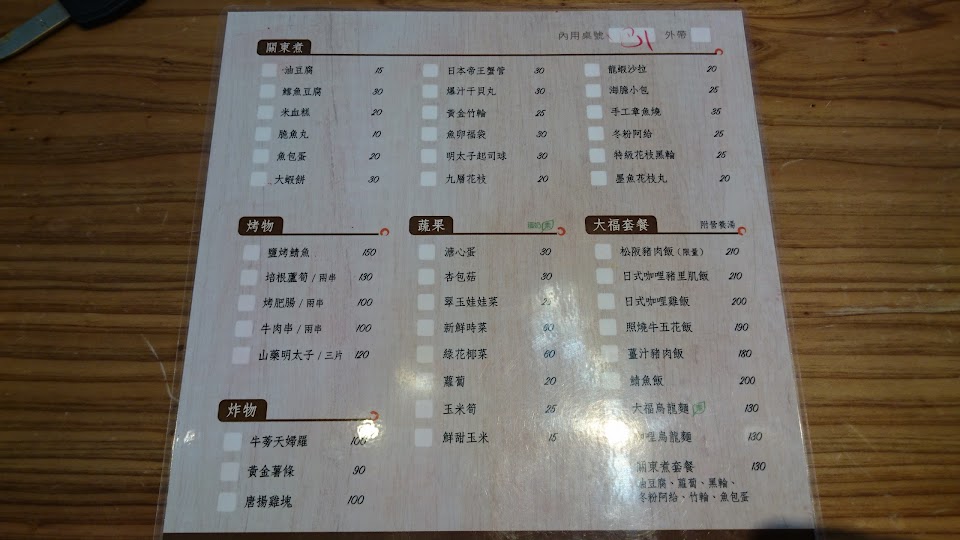 內用桌號 31 外帶
關東煮
油豆腐 15
鱈魚豆腐 30
米血糕 20
脆魚丸 10
魚包蛋 20
大蝦餅 30
日本帝王蟹管 30
爆汁干貝丸 30
黃金竹輪 25
魚卵福袋 30
明太子起司球 30
九層花枝 20
龍蝦沙拉 20
海膽小包 25
手工章魚燒 35
冬粉阿給 25
特級花枝黑輪 25
墨魚花枝丸 20
烤物
鹽烤鯖魚 150
培根蘆筍/兩串 130
烤肥腸/兩串 100
牛肉串/兩串 100
山藥明太子/三片 120
炸物
牛蒡天婦羅 100
黃金薯條 90
唐揚雞塊 100
蔬果
溏心蛋 30
杏包菇 30
翠玉娃娃菜 25
新鮮時菜 60
綠花椰菜 60
蘿蔔 20
玉米筍 25
鮮甜玉米 15
大福套餐 附營養湯
松阪豬肉飯(限量) 210
日式咖哩豬里肌飯 210
日式咖哩雞飯 200
照燒牛五花飯 190
薑汁豬肉飯 180
鯖魚飯 200
大福烏龍麵 130
咖哩烏龍麵 130
關東煮套餐 130
油豆腐、蘿蔔、黑輪、
冬粉阿給、竹輪、魚包蛋